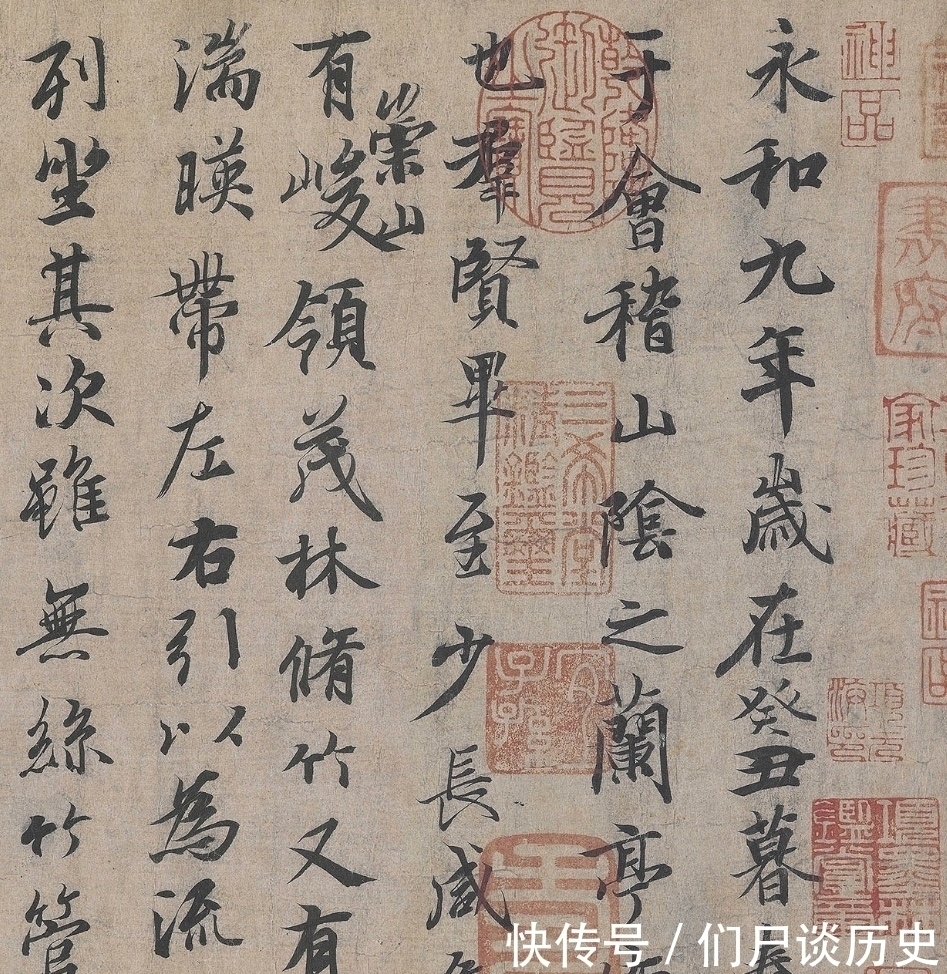 永和九年歲在癸丑暮
于會稽山陰之蘭亭
也羣賢畢至少長咸
有崇山峻領茂林脩竹又有
湍暎帶左右引以為流
列坐其次雖無絲竹管
神品
家珍藏
三希堂精鑑璽
宜子孫
快传号 / 们只谈历史